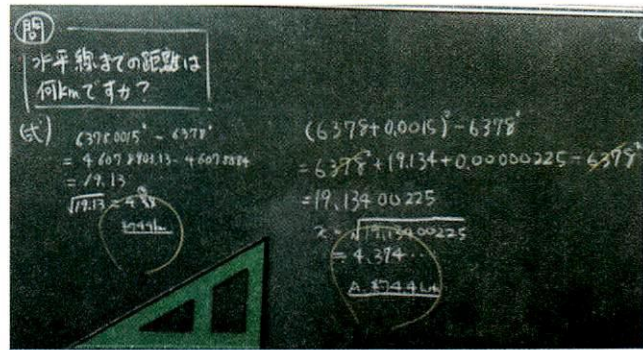 問
水平線までの距離は
何kmですか?
(式) 6378.0015² - 6378²
= 40678903.13 - 40678884
= 19.13
√19.13 = 4.38
約4.4km
(6378+0.0015)² - 6378²
= 6378² + 19.134 + 0.00000225 - 6378²
= 19.13400225
x = √19.13400225
= 4.374··
A. 約4.4km